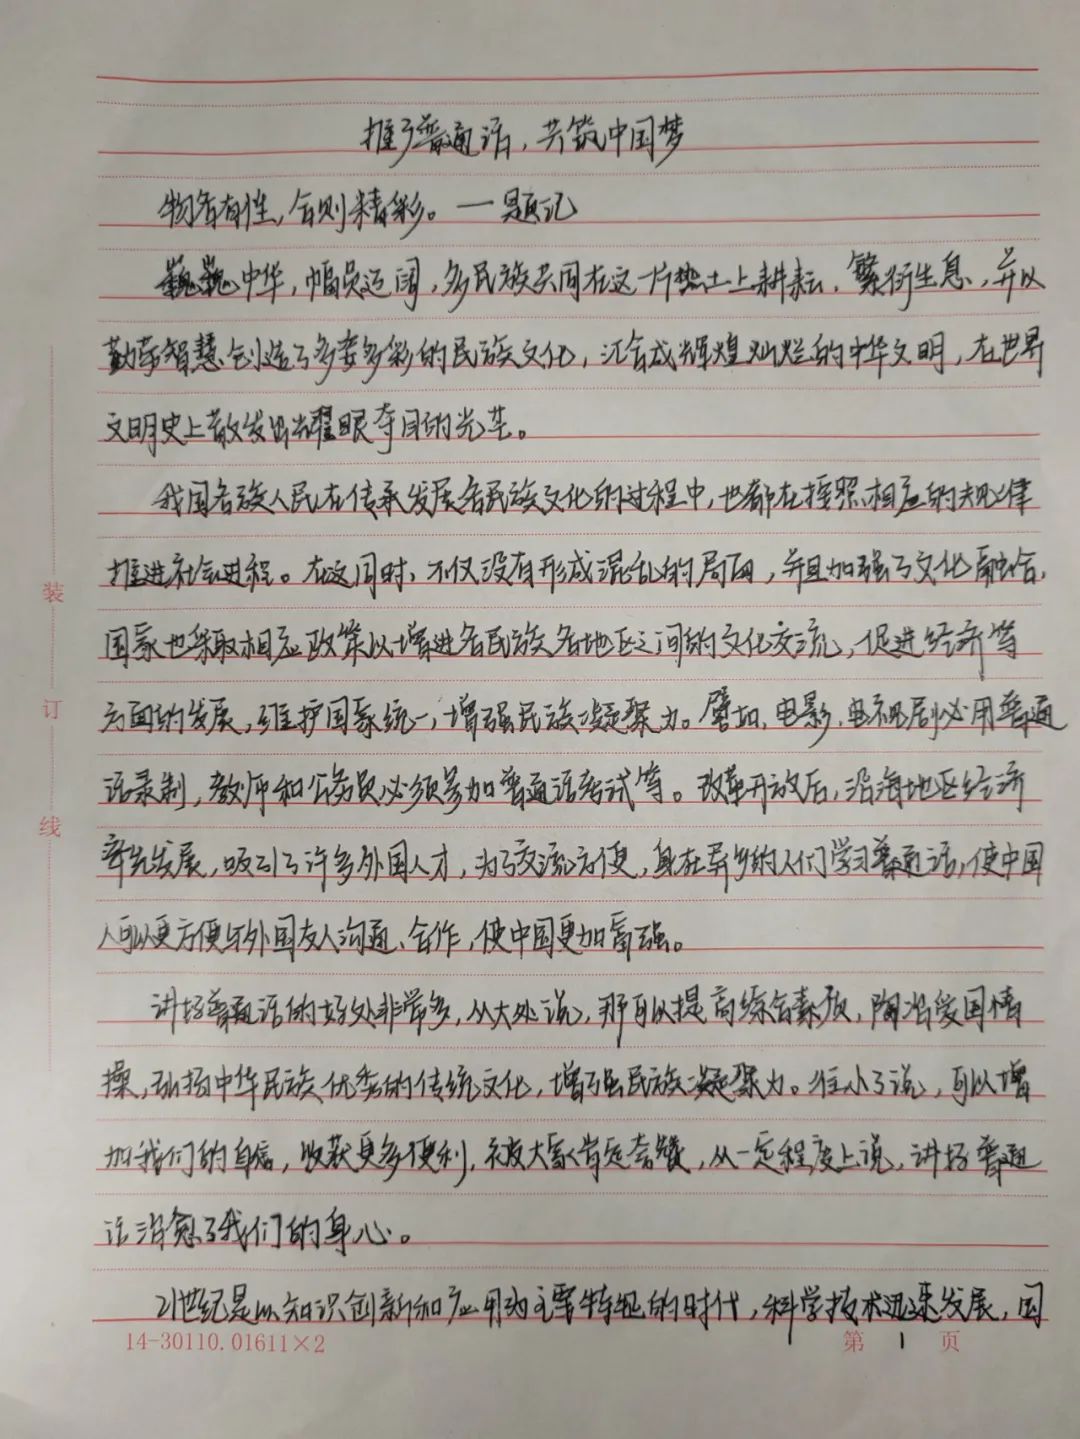 推广普通话，共筑中国梦
物各有性，合则精彩。——题记
巍巍中华，幅员辽阔，多民族共同在这一片热土上耕耘、繁衍生息，并以
勤劳智慧创造了多姿多彩的民族文化，汇合成辉煌灿烂的中华文明，在世界
文明史上散发出耀眼夺目的光芒。
我国各族人民在传承发展各民族文化的过程中，也都在按照相应的规律
推进社会进程。在这同时，不仅没有形成混乱的局面，并且加强了文化融合，
国家也采取相应政策以增进各民族各地区之间的文化交流，促进经济等
方面的发展，维护国家统一，增强民族凝聚力。譬如，电影、电视剧必用普通
话录制，教师和公务员必须参加普通话考试等。改革开放后，沿海地区经济
率先发展，吸引了许多外国人才，为了交流方便，身在异乡的人们学习普通话，使中国
人可以更方便与外国友人沟通、合作，使中国更加富强。
讲好普通话的好处非常多，从大处说，那可以提高综合素质，陶冶爱国情
操，弘扬中华民族优秀的传统文化，增强民族凝聚力。往小了说，可以增
加我们的自信，收获更多便利，被大家肯定夸赞，从一定程度上说，讲好普通
话治愈了我们的身心。
21世纪是以知识创新和应用为主要特征的时代，科学技术迅速发展，国
装
订
线
14-30110.01611×2
第 1 页